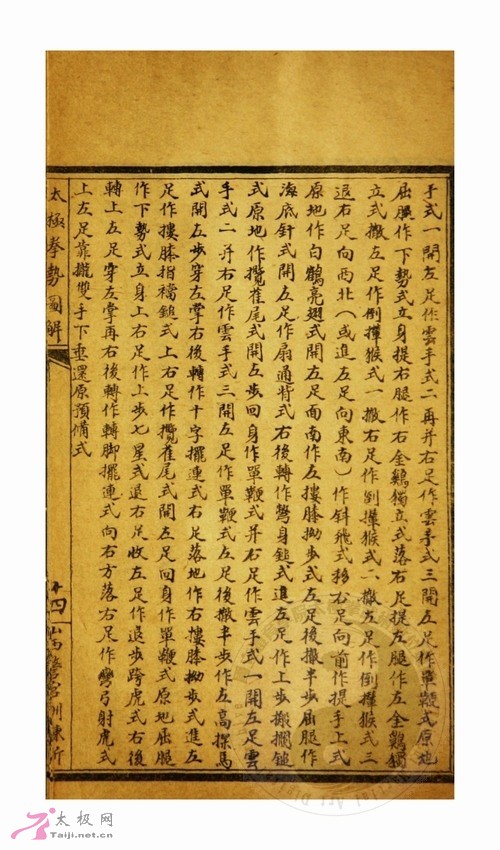 手式一開左足作雲手式二再并右足作雲手式三開左足作單鞭式原地
屈腿作下勢式立身提右腿作右金鷄獨立式落右足提左腿作左金鷄獨
立式撤左足作倒攆猴式一撤右足作倒攆猴式二撤左足作倒攆猴式三
退右足向西北(或進左足向東南)作斜飛式移右足向前作提手上式
原地作白鶴亮翅式開左足面南作左摟膝拗步式左足後撤半步屈腿作
海底針式開左足作扇通背式右後轉作彆身鎚式進左足作上步搬攔鎚
式原地作攬雀尾式開左步回身作單鞭式并右足作雲手式一開左足雲
手式二并右足作雲手式三開左足作單鞭式左足後撤半步作左高探馬
式開左步穿左掌右後轉作十字擺連式右足落地作右摟膝拗步式進左
足作摟膝指襠鎚式上右足作攬雀尾式開左足回身作單鞭式原地屈腿
作下勢式立身上右足作上步七星式退右足收左足作退步跨虎式右後
轉上左足穿左掌再右後轉作轉脚擺連式向右方落右足作彎弓射虎式
上左足靠攏雙手下垂還原預備式
太極拳勢圖解
十四
太极网
Taiji.net.cn